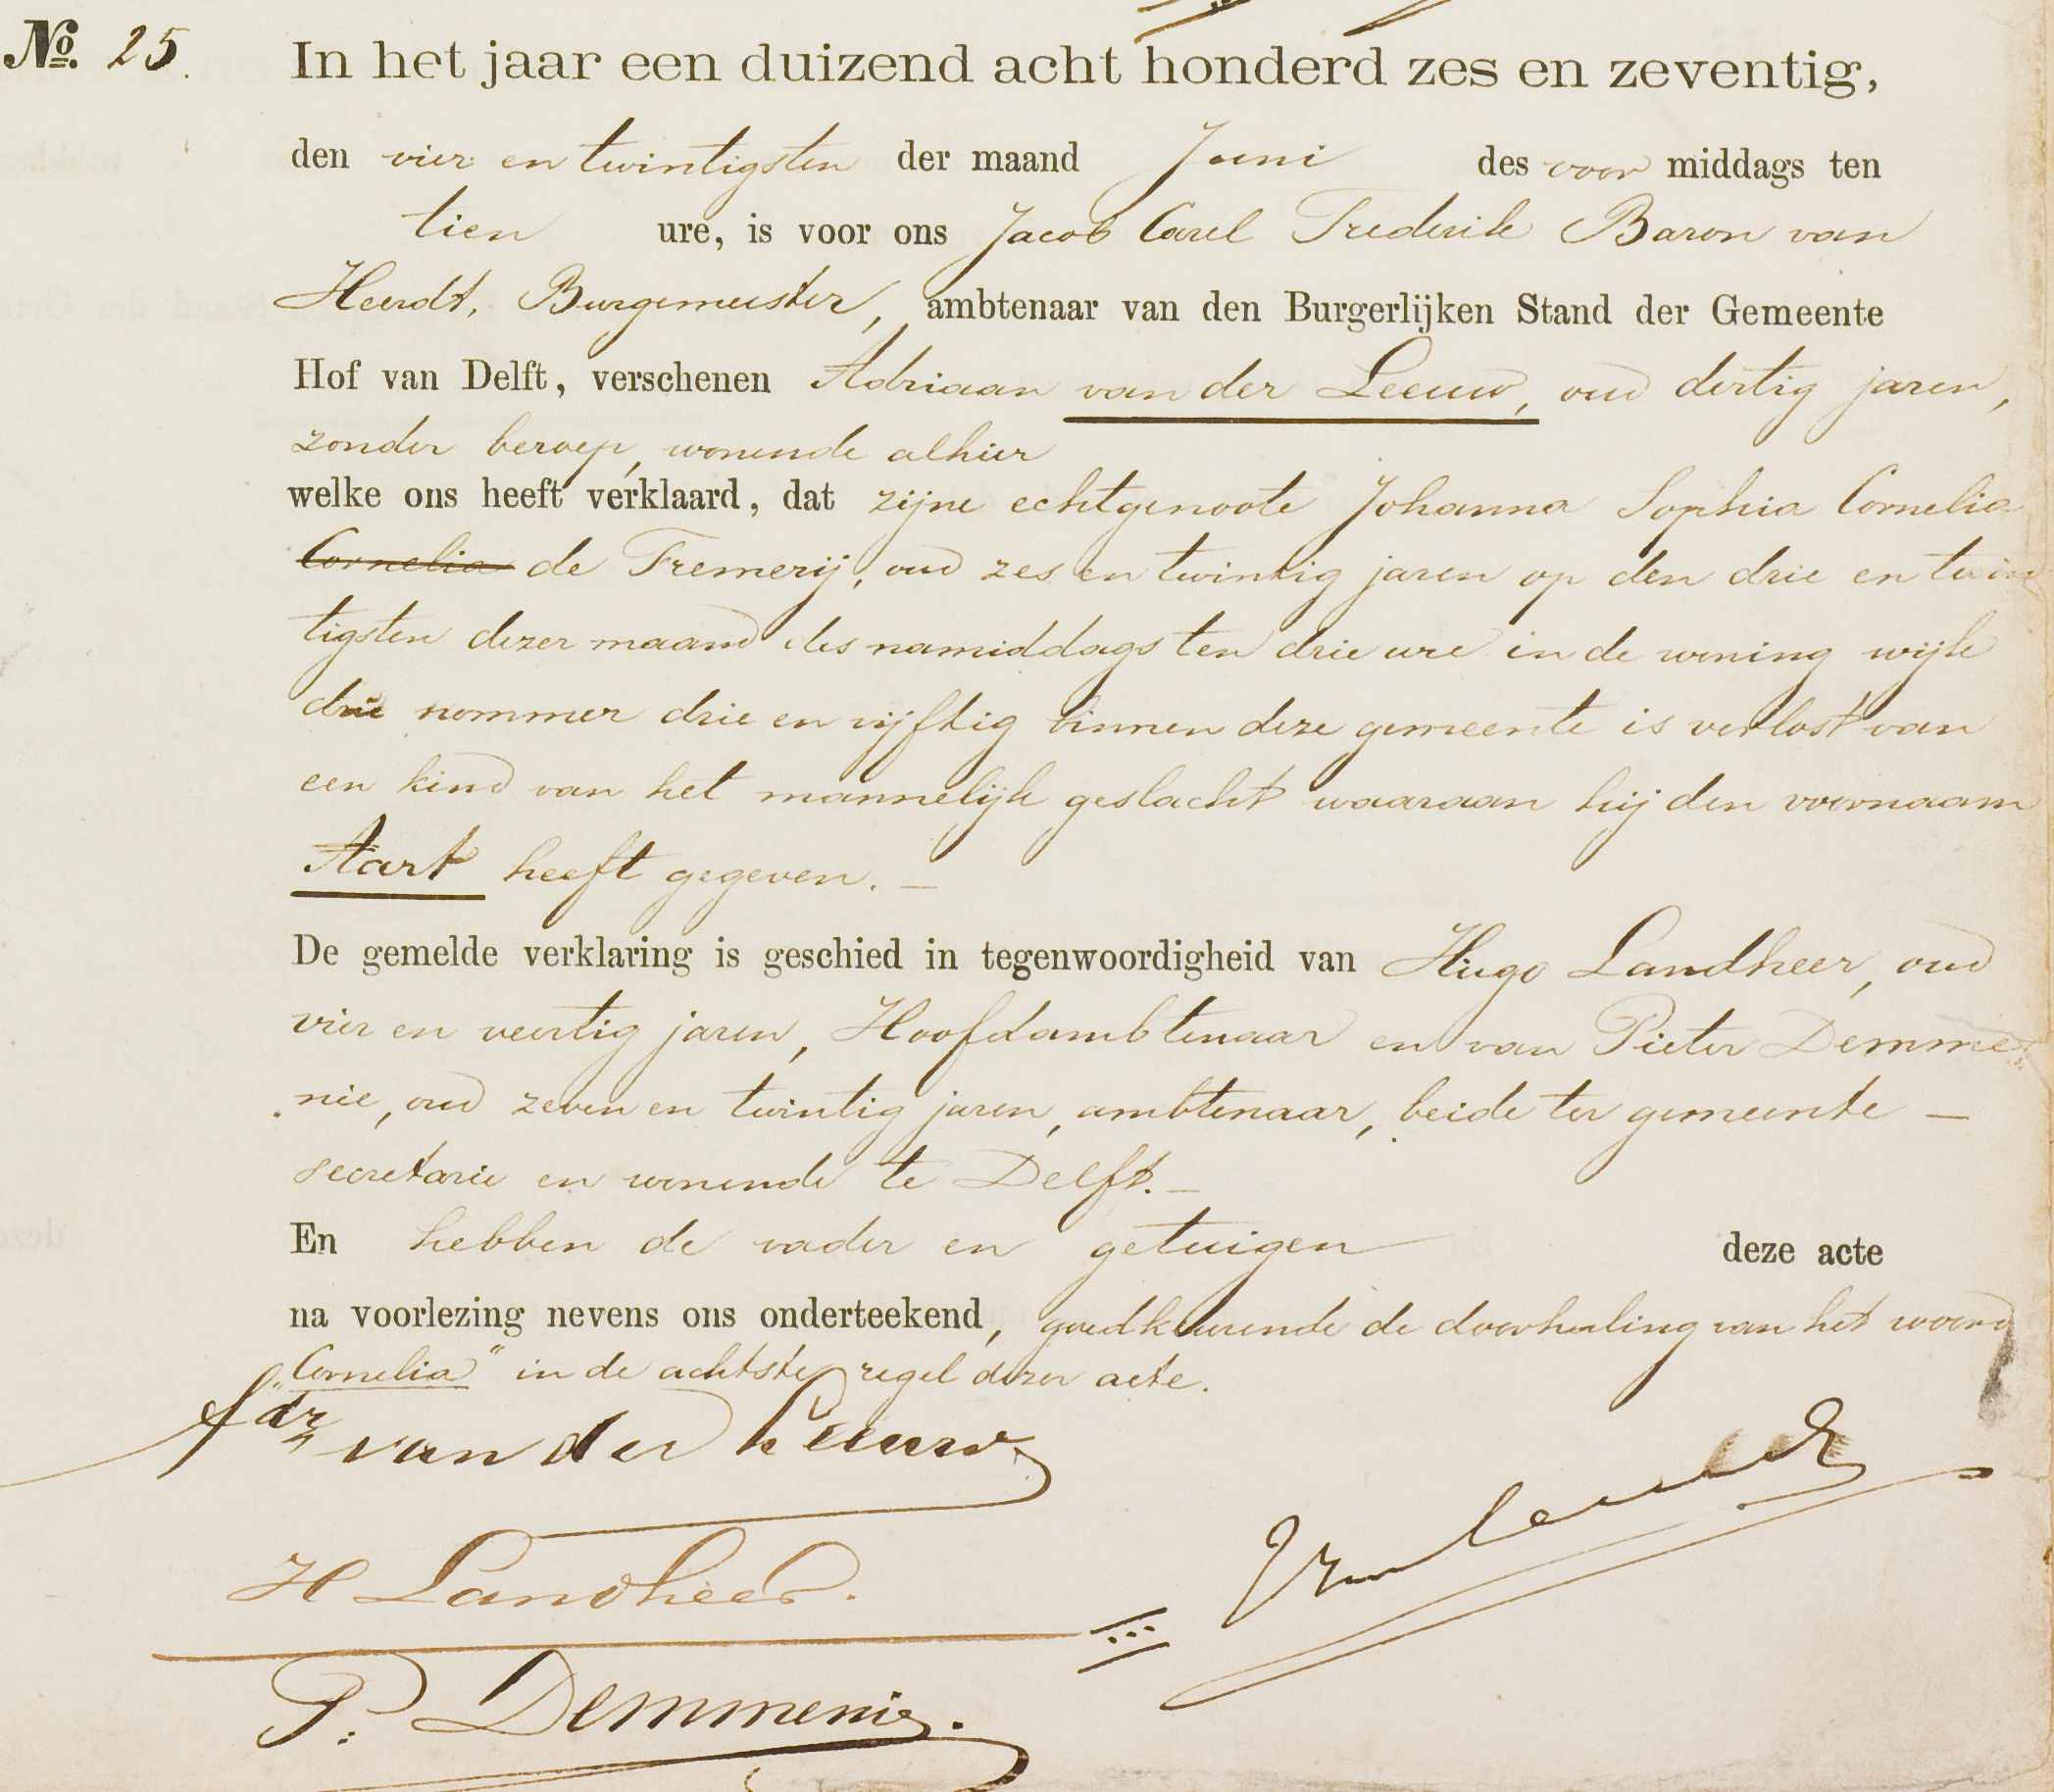 No. 25.
In het jaar een duizend acht honderd zes en zeventig,
den vier en twintigsten der maand Juni des voor middags ten
tien ure, is voor ons Jacob Carel Frederik Baron van
Heerdt, Burgemeester, ambtenaar van den Burgerlijken Stand der Gemeente
Hof van Delft, verschenen Adriaan van der Leeuw, oud dertig jaren,
zonder beroep, wonende alhier
welke ons heeft verklaard, dat zijne echtgenoote Johanna Sophia Cornelia
Cornelia de Fremerij, oud zes en twintig jaren op den drie en twin
tigsten dezer maand des namiddags ten drie ure in de woning wijk
drie nommer drie en vijftig binnen deze gemeente is verlost van
een kind van het mannelijk geslacht waaraan hij den voornaam
Aart heeft gegeven. —
De gemelde verklaring is geschied in tegenwoordigheid van Hugo Landheer, oud
vier en veertig jaren, Hoofdambtenaar en van Pieter Demme
nie, oud zeven en twintig jaren, ambtenaar, beide ter gemeente —
secretarie en wonende te Delft. —
En hebben de vader en getuigen deze acte
na voorlezing nevens ons onderteekend, goedkeurende de doorhaling van het woord
"Cornelia" in de achtste regel dezer acte.
Adr van der Leeuw
H Landheer.
P. Demmenie.